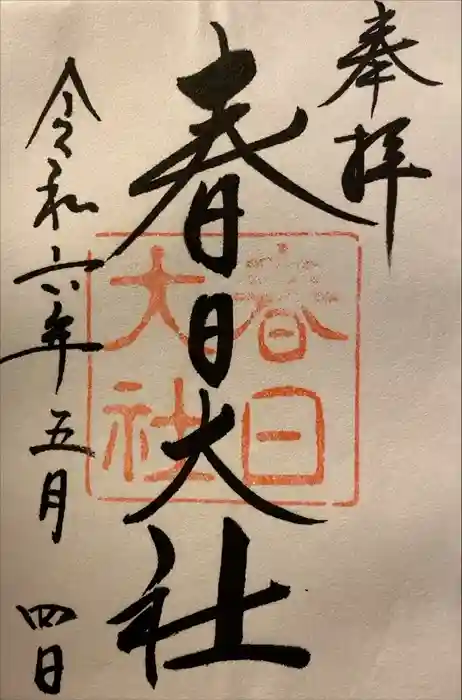 奉拝
春日大社
春日
大社
令和六年五月四日